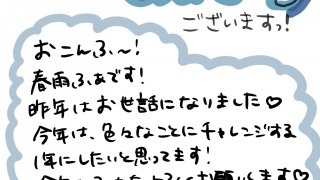 ございますっ!
おこんふぁ〜!
春雨ふぁです!
昨年はお世話になりました♡
今年は、色々なことにチャレンジする
1年にしたいと思ってます!
お願いします♡